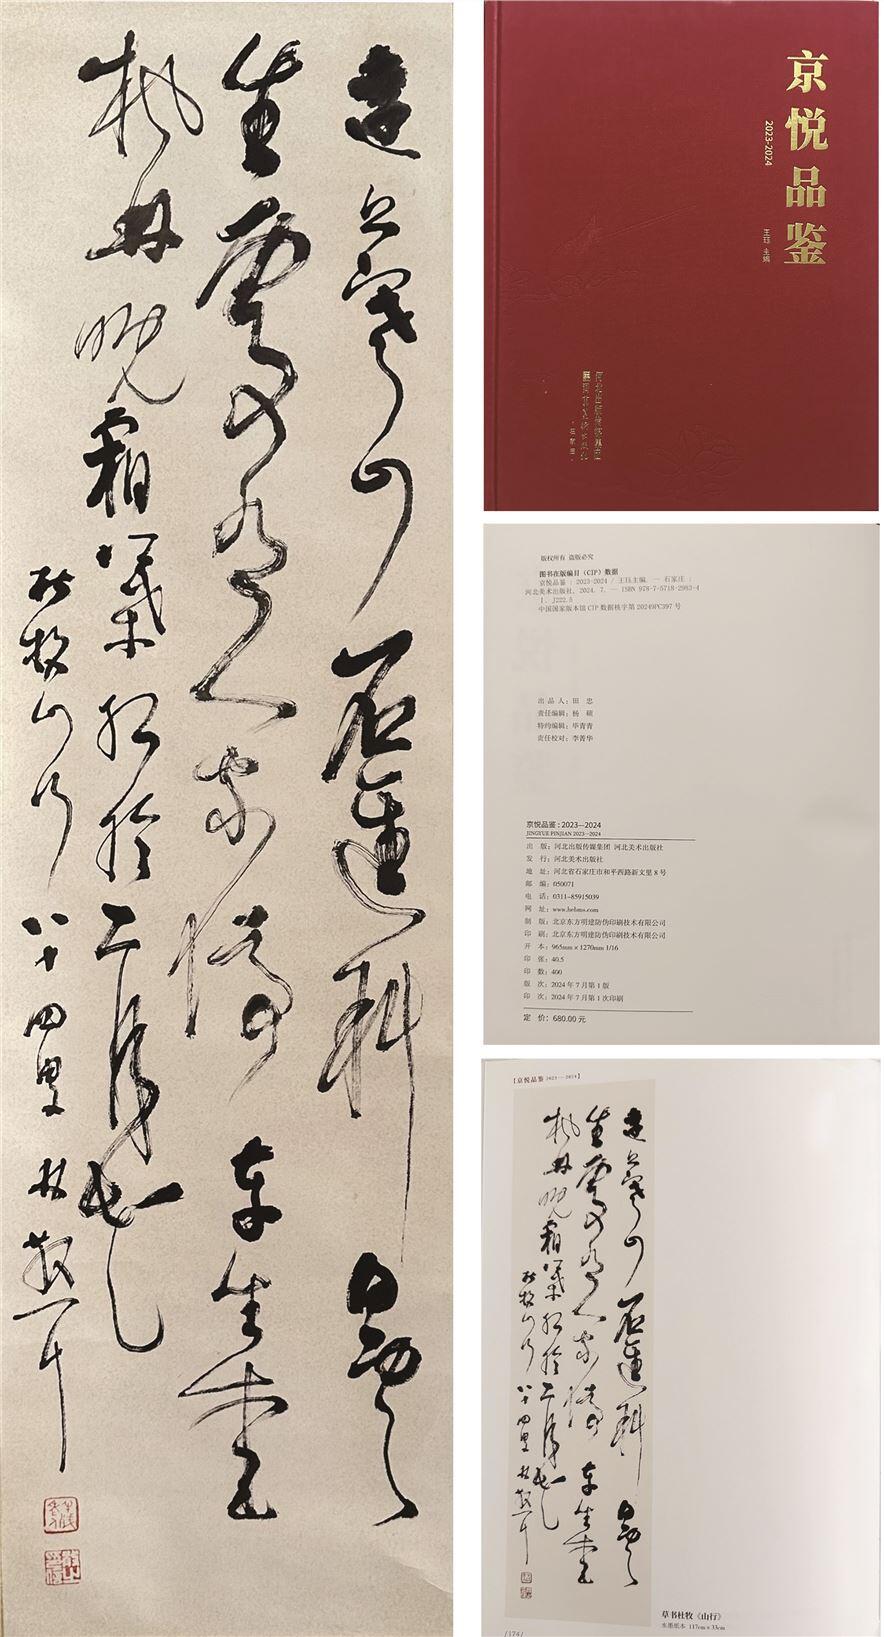 遠上寒山石逕斜白雲
生處有人家停車坐愛
楓林晚霜葉紅於二月花
杜牧山行 八十四叟 林散耳
京悦品鉴
2023-2024
王珏 主编
河北出版传媒集团
河北美术出版社
·石家庄·
版权所有 盗版必究
图书在版编目（CIP）数据
京悦品鉴：2023-2024 / 王珏主编. — 石家庄：
河北美术出版社, 2024. 7. — ISBN 978-7-5718-2983-4
Ⅰ. J222.8
中国国家版本馆 CIP 数据核字第 20249PC397 号
出 品 人：田　忠
责任编辑：杨　硕
特约编辑：毕青青
责任校对：李菁华
京悦品鉴：2023—2024
JINGYUE PINJIAN 2023—2024
出　版：河北出版传媒集团 河北美术出版社
发　行：河北美术出版社
地　址：河北省石家庄市和平西路新文里 8 号
邮　编：050071
电　话：0311-85915039
网　址：www.hebms.com
制　版：北京东方明建防伪印刷技术有限公司
印　刷：北京东方明建防伪印刷技术有限公司
开　本：965mm×1270mm 1/16
印　张：40.5
印　数：400
版　次：2024 年 7 月第 1 版
印　次：2024 年 7 月第 1 次印刷
定　价：680.00 元
【京悦品鉴 2023—2024】
遠上寒山石逕斜白雲
生處有人家停車坐愛
楓林晚霜葉紅於二月花
杜牧山行 八十四叟 林散耳
草书杜牧《山行》
水墨纸本 117cm×33cm
/174/